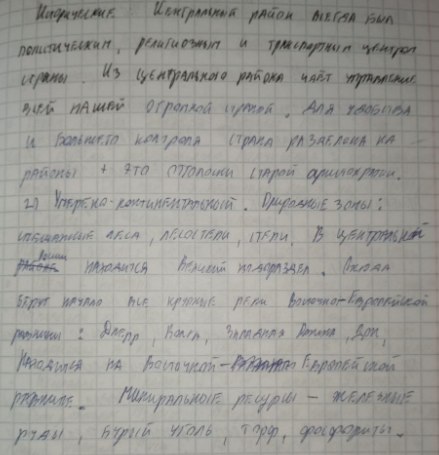 Исторические: Центральный район всегда был
политическим, религиозным и транспортным центром
страны. Из центрального района идёт управление
всей нашей огромной страной. Для удобства
и большего контроля страна разделена на
районы + это отголоски старой аристократии.
2) Умерено-континентальный. Природные зоны:
смешанные леса, лесостепи, степи. В центральной
находится Великий водораздел. Отсюда
берут начало все крупные реки Восточно-Европейской
равнины: Днепр, Волга, Западная Двина, Дон,
Находится на Восточной-Европейской
равнине. Минеральные ресурсы - железные
руды, бурый уголь, торф, фосфориты.